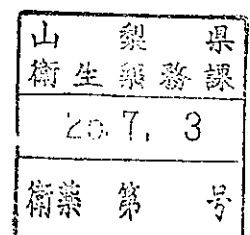 山梨県
衛生薬務課
20.7.3
衛薬第 号